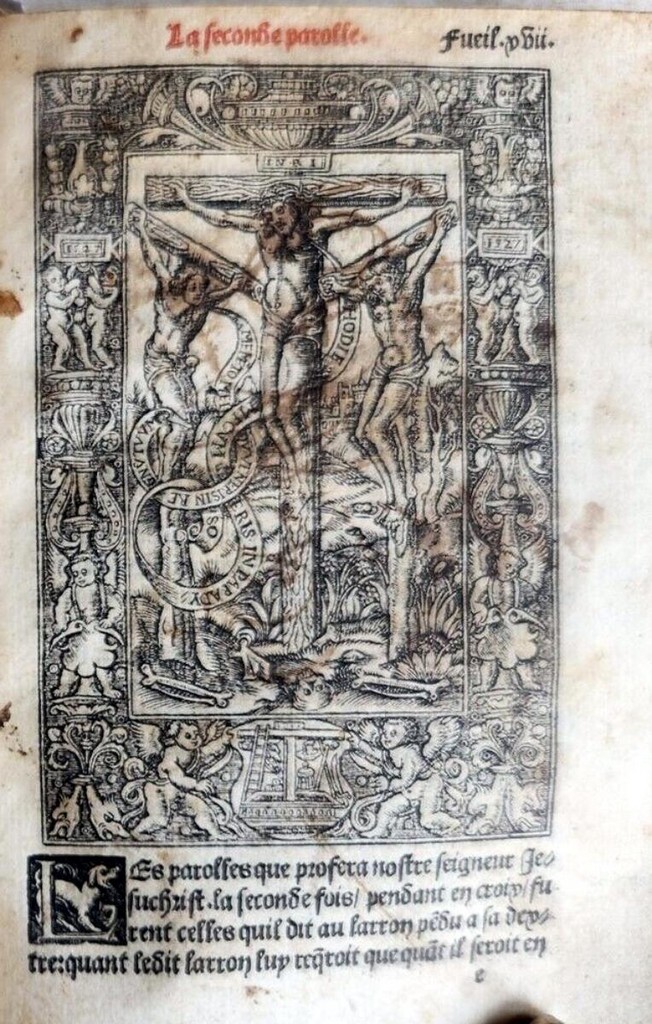 La seconde parolle.
Fueil.xvii.
INRI
1527
1527
HODIE
MECVM
ERIS IN PARADY
SO
LEs parolles que profera nostre seigneur Je⸗
suchrist.la seconde fois/ pendant en croix/fu
rent celles quil dit au larron pẽdu a sa dex⸗
tre:quant ledit larron luy reqͥroit que quãt il seroit en
e